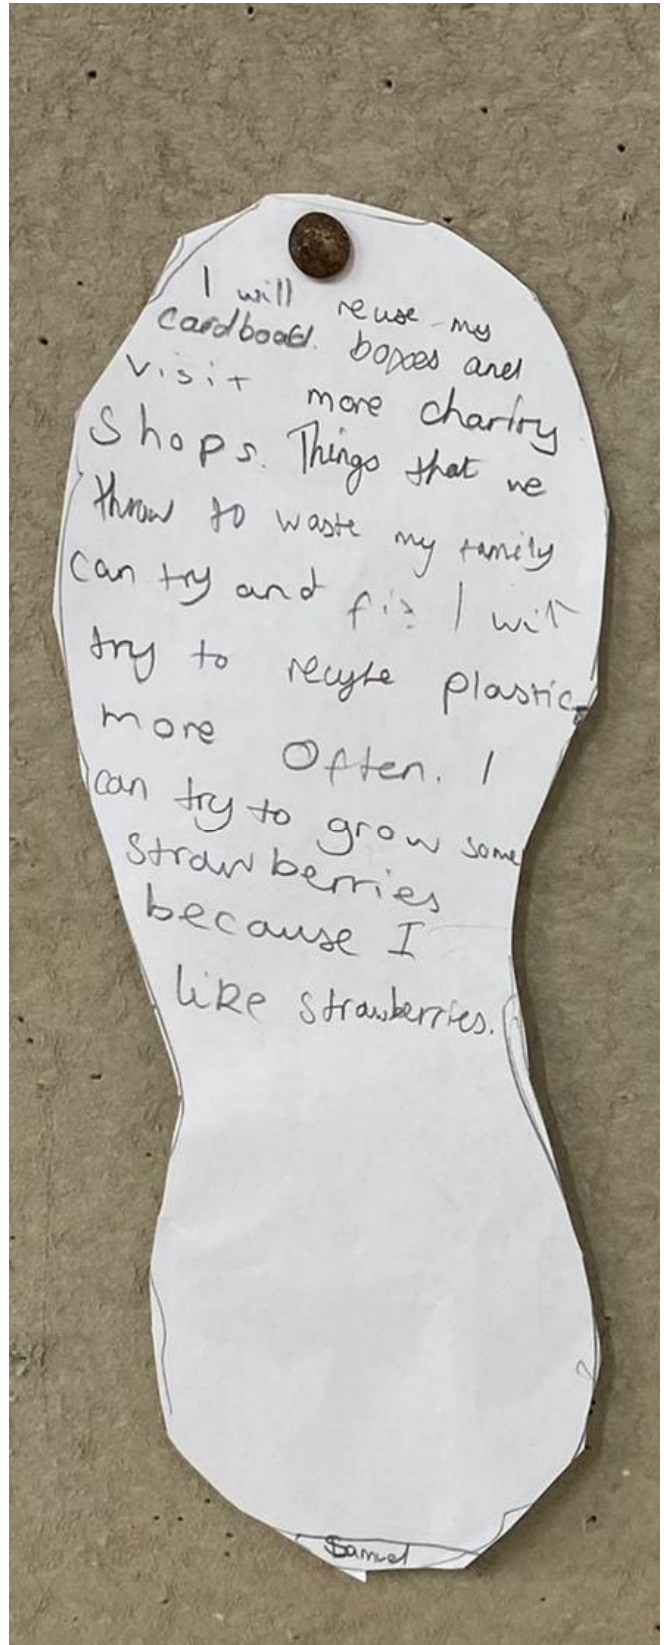 I will reuse my
cardboad. boxes and
visit more charity
shops. Things that we
throw to waste my family
can try and fix I will
try to recycle plastic
more Often. I
can try to grow some
strawberries
because I
like strawberries.
Samuel